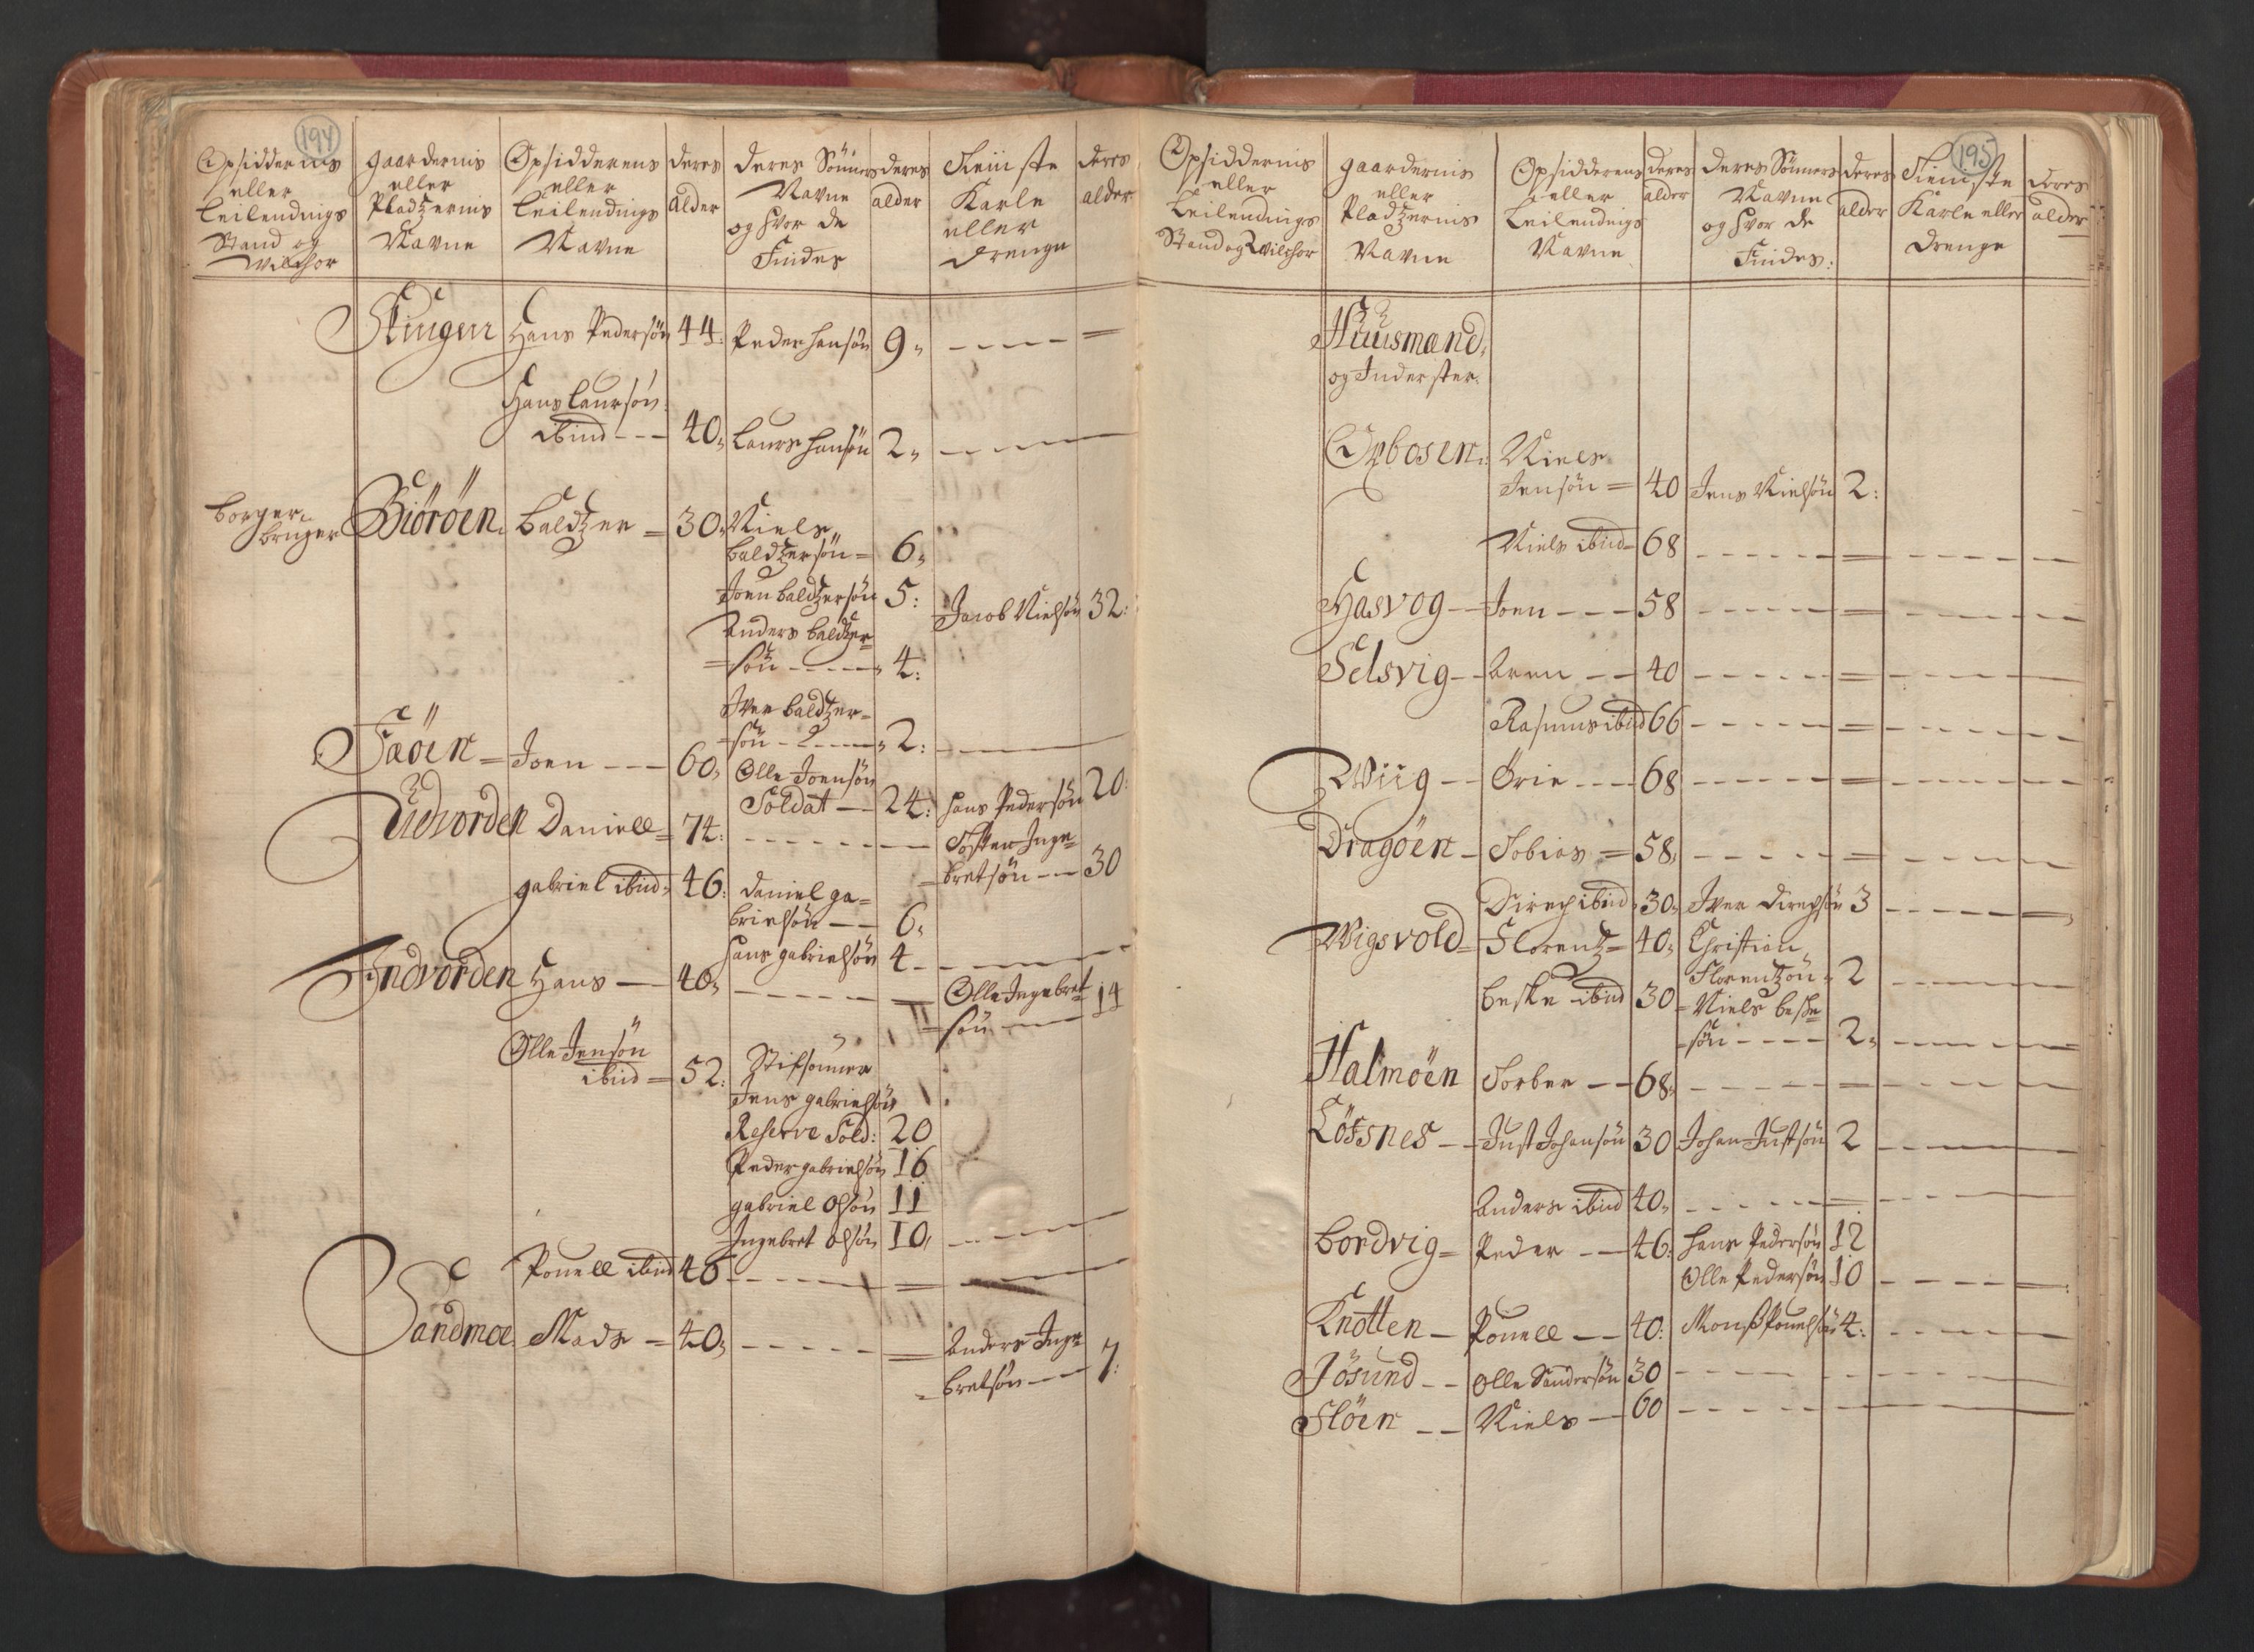 194
Opsiddernis
eller
Leilendings
Stand og
Wilchor
gaardernis
eller
Pladzernis
Navne
Opsidderens
eller
Leilendings
Navne
deres
alder
deres Sönners
Navne
og hvor de
Findes
deres
alder
Tieniste
Karle
eller
drenge
deres
alder
Stingen Hans Pedersön 44: Peder hansön 9, - - - - =
Hans Laursön
ibiid - - - 40, Laurs hansön 2, - - - -
borger
bruger Biöröen. baldzer = 30, Niels
baldzersön = 6,
Joen baldzersön 5: Jacob Nielsön 32:
Anders baldzer=
=sön - - - - 4:
Iver baldzer=
=sön - - - - 2: - - -
Faöen = Joen - - - 60, Olle Joensön
Soldat - - 24: hans Pedersön 20:
Udvorden Daniell = 74: - - - - - - - Tosten Inge=
=bretsön - - 30
gabriel ibiid, 46: daniel ga=
brielsön - - 6,
hans gabrielsön 4 - - - - -
Indvorden Hans - - 40, - - - - - = Olle Ingebret=
=sön - - 14
Olle Jensön
ibiid = 52: Stifsönner
Jens gabrielsön
Reserve Sold: 20
Peder gabrielsön 16
gabriel olsön 11
Ingebret olsön 10, - - - -
Pouell ibiid 46 - - - - - = - - -
Sandmoe Mads = 40, - - - - - = Anders Inge=
=bretsön - - 7:
195
Opsiddernis
eller
Leilendings
Stand og Wilchor
gaardernis
eller
Pladzernis
Navne
Opsidderens
eller
Leilendings
Navne
deres
alder
deres Sönners
Navne
og hvor de
Findes:
deres
alder
Tieniste
Karle eller
drenge
deres
alder
Huusmænd,
og Inderster.
Opbosen: Niels
Jensön = 40 Jens Nielsön 2:
Niels ibiid = 68 - - - - - = - - - - -
Hasvog - - Joen - - - 58 - - - - - = - - - - -
Selsvig - - Aren - - 40 - - - - - = - - - - -
Rasmus ibiid 66 - - - - - = - - - - -
Wiig - - Örie - - - 68 - - - - - = - - - - -
Dragöen - Tobias = 58, - - - - - = - - - - -
Direch ibiid, 30, Iver Direchsön 3 - - - - -
Wigsvold = Florentz = 40, Christian
Florentzön = 2 - - - - -
beske ibiid 30 - Niels beske=
=sön - - - - 2, - - - - -
Halmöen Torber - - 68, - - - - - = - - - - -
Lösnes - - Just Johansön 30 Johan Justsön 2 - - - - -
Anders ibiid 40, - - - - - = - - - - -
bordvig = Peder - - 46: hans Pedersön 12
Olle Pedersön 10 - - - - -
Knotten - Pouell - - 40: Monß Pouelsön 4: - - - - -
Jösund - - Olle Sandersön 30 - - - - - - - - -
Flöen - - Niels - 60 - - - - - - - - -